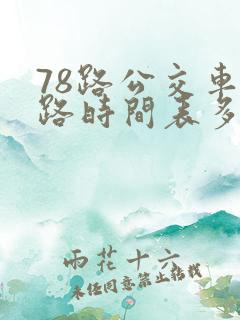 78路公交車
路時間表多
雨花十六
未经同意禁止转载